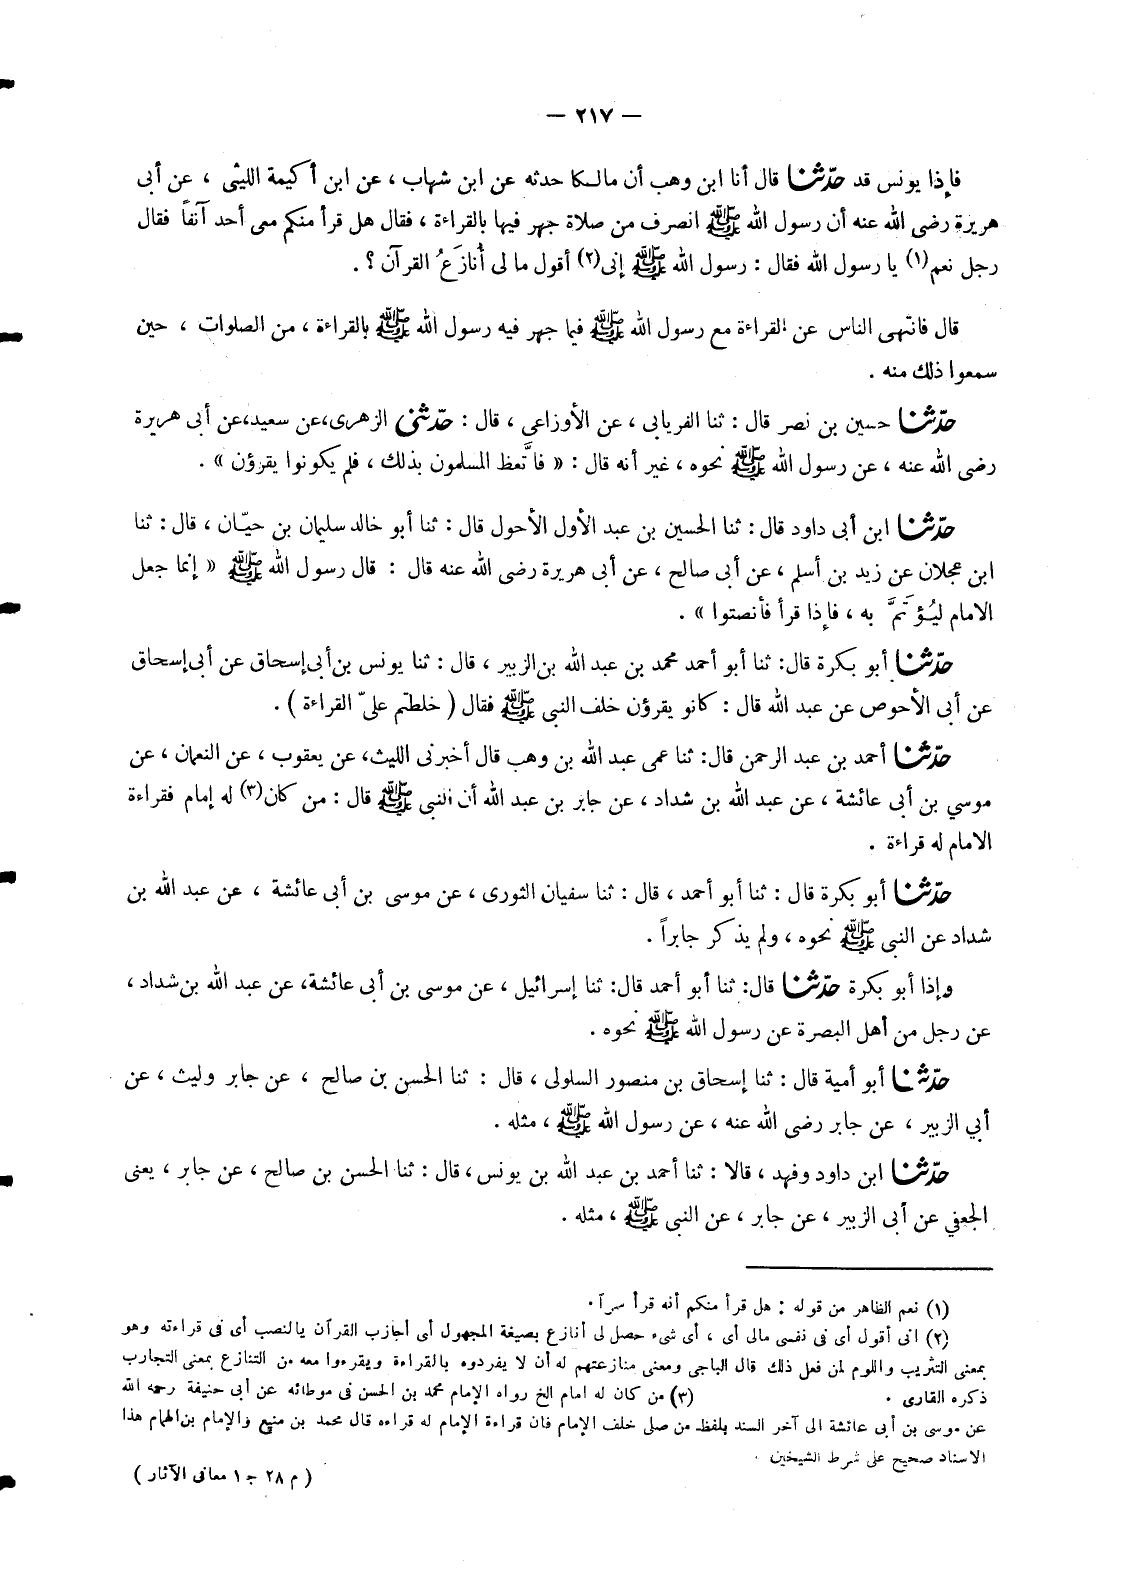 — ٢١٧ —
فإذا يونس قد حدّثنا قال أنا ابن وهب أن مالكا حدثه عن ابن شهاب ، عن ابن أكيمة الليثى ، عن أبى
هريرة رضى الله عنه أن رسول الله ﷺ انصرف من صلاة جهر فيها بالقراءة ، فقال هل قرأ منكم معى أحد آنفاً فقال
رجل نعم(١) يا رسول الله فقال : رسول الله ﷺ إنى(٢) أقول ما لى أُنازَعُ القرآن ؟ .
قال فانتهى الناس عن القراءة مع رسول الله ﷺ فيما جهر فيه رسول الله ﷺ بالقراءة ، من الصلوات ، حين
سمعوا ذلك منه .
حدّثنا حسين بن نصر قال : ثنا الفريابى ، عن الأوزاعى ، قال : حدّثنى الزهرى،عن سعيد،عن أبى هريرة
رضى الله عنه ، عن رسول الله ﷺ نحوه ، غير أنه قال : « فاتَّعظ المسلمون بذلك ، فلم يكونوا يقرؤن » .
حدّثنا ابن أبى داود قال : ثنا الحسين بن عبد الأول الأحول قال : ثنا أبو خالد سليمان بن حيّان ، قال : ثنا
ابن عجلان عن زيد بن أسلم ، عن أبى صالح ، عن أبى هريرة رضى الله عنه قال : قال رسول الله ﷺ « إنما جعل
الامام ليُؤتَمَّ به ، فإذا قرأ فأنصتوا » .
حدّثنا أبو بكرة قال: ثنا أبو أحمد محمد بن عبد الله بن الزبير ، قال : ثنا يونس بن أبى إسحاق عن أبى إسحاق
عن أبى الأحوص عن عبد الله قال : كانو يقرؤن خلف النبى ﷺ فقال ( خلطتم علىّ القراءة ) .
حدّثنا أحمد بن عبد الرحمن قال: ثنا عمى عبد الله بن وهب قال أخبرنى الليث، عن يعقوب ، عن النعمان ، عن
موسي بن أبى عائشة ، عن عبد الله بن شداد ، عن جابر بن عبد الله أن النبى ﷺ قال : من كان(٣) له إمام فقراءة
الامام له قراءة .
حدّثنا أبو بكرة قال : ثنا أبو أحمد ، قال : ثنا سفيان الثورى ، عن موسى بن أبى عائشة ، عن عبد الله بن
شداد عن النبى ﷺ نحوه ، ولم يذكر جابراً .
وإذا أبو بكرة حدّثنا قال: ثنا أبو أحمد قال: ثنا إسرائيل ، عن موسى بن أبى عائشة، عن عبد الله بن شداد ،
عن رجل من أهل البصرة عن رسول الله ﷺ نحوه .
حدّثنا أبو أمية قال : ثنا إسحاق بن منصور السلولى ، قال : ثنا الحسن بن صالح ، عن جابر وليث ، عن
أبي الزبير ، عن جابر رضى الله عنه ، عن رسول الله ﷺ ، مثله .
حدّثنا ابن داود وفهد ، قالا : ثنا أحمد بن عبد الله بن يونس ، قال : ثنا الحسن بن صالح ، عن جابر ، يعنى
الجعفي عن أبى الزبير ، عن جابر ، عن النبى ﷺ ، مثله .
(١) نعم الظاهر من قوله : هل قرأ منكم أنه قرأ سراً .
(٢) انى أقول أى فى نفسى مالى أى ، أى شىء حصل لى أنازع بصيغة المجهول أى أجازب القرآن بالنصب أى فى قراءته وهو
بمعنى التثريب واللوم لمن فعل ذلك قال الباجى ومعنى منازعتهم له أن لا يفردوه بالقراءة ويقرءوا معه من التنازع بمعنى التجارب
ذكره القارى . (٣) من كان له امام الخ رواه الإمام محمد بن الحسن فى موطائه عن أبى حنيفة رحمه الله
عن موسى بن أبى عائشة الى آخر السند بلفظ من صلى خلف الإمام فان قراءة الإمام له قراءه قال محمد بن منيع والإمام بن الهمام هذا
الاسناد صحيح على شرط الشيخين .
( م ٢٨ ج ١ معانى الآثار )